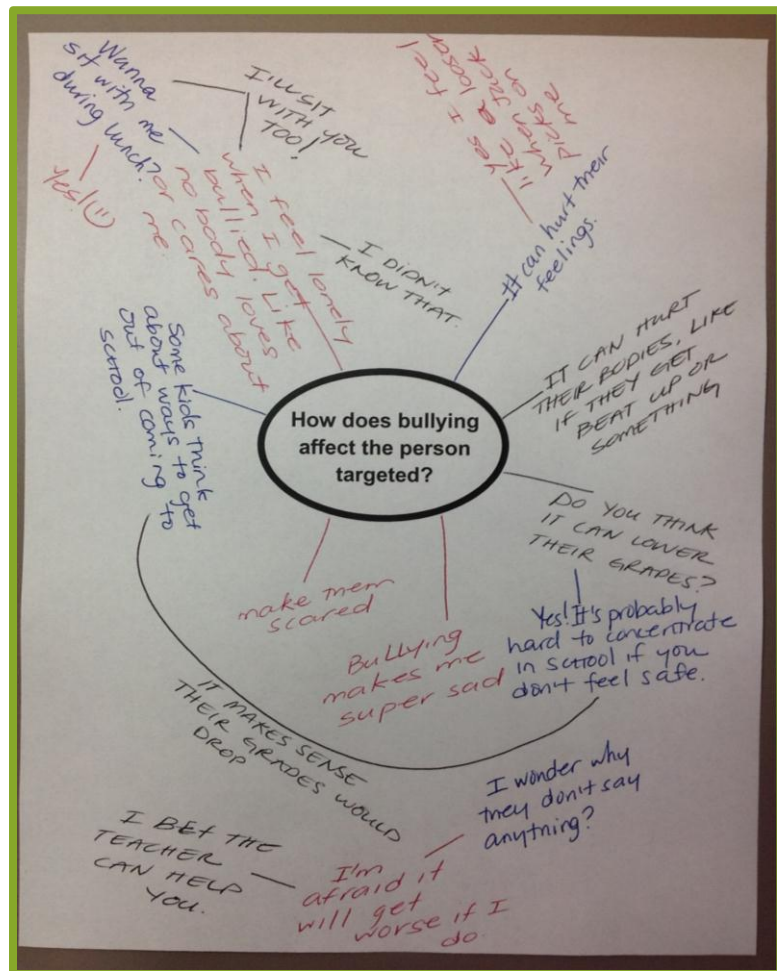 How does bullying
affect the person
targeted?
Wanna
sit with me
during lunch?
Yes! ☺
I'LL SIT
WITH YOU
TOO!
I feel lonely
when I get
bullied. Like
no body loves
or cares about
me.
I DIDN'T
KNOW THAT.
Yes I feel
like a looser
when Jack
picks on
me
It can hurt their
feelings.
IT CAN HURT
THEIR BODIES, LIKE
IF THEY GET
BEAT UP OR
SOMETHING
DO YOU THINK
IT CAN LOWER
THEIR GRADES?
Yes! It's probably
hard to concentrate
in school if you
don't feel safe.
Bullying
makes me
super sad
make them
scared
Some kids think
about ways to get
out of coming to
school.
IT MAKES SENSE
THEIR GRADES WOULD
DROP
I wonder why
they don't say
anything?
I'm
afraid it
will get
worse if I
do.
I BET THE
TEACHER
CAN HELP
YOU.